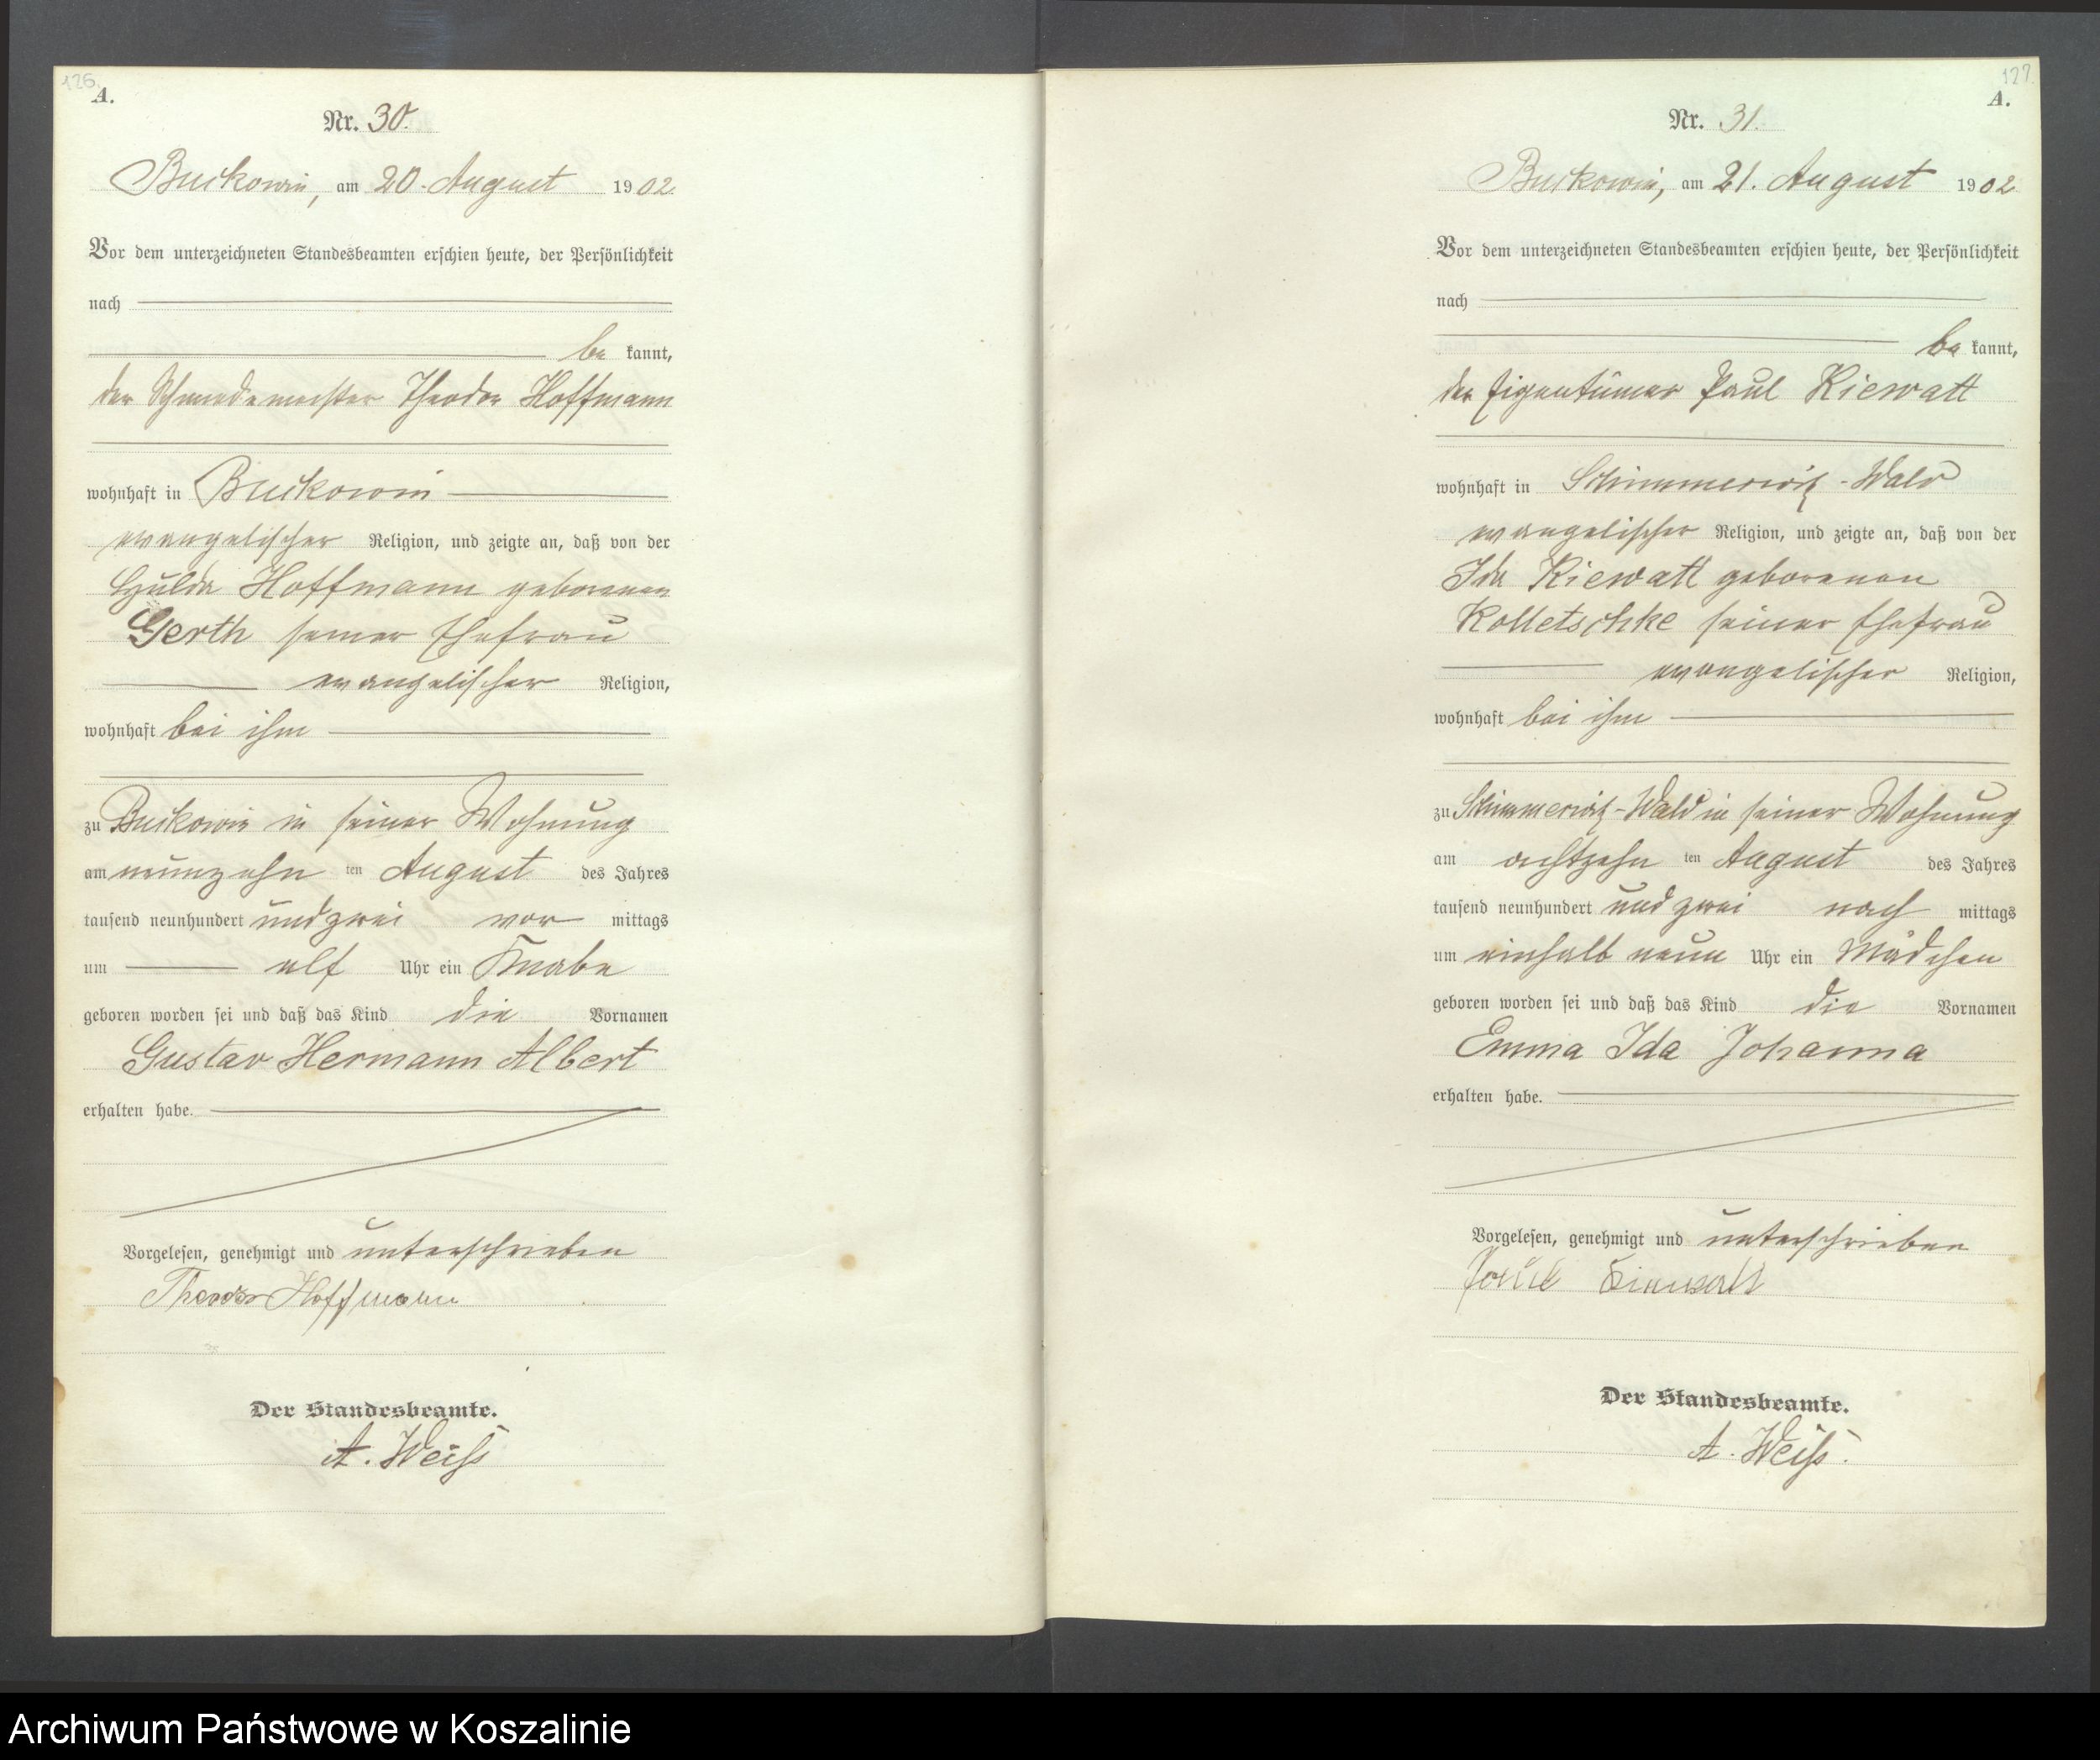 126.
A.
Nr. 30.
Buckowin, am 20. August 1902.
Vor dem unterzeichneten Standesbeamten erschien heute, der Persönlichkeit
nach
be kannt,
der Schmiedemeister Theodor Hoffmann
wohnhaft in Buckowin
evangelischer Religion, und zeigte an, daß von der
Hulda Hoffmann geborenen
Gerth seiner Ehefrau
evangelischer Religion,
wohnhaft bei ihm
zu Buckowin in seiner Wohnung
am neunzehn ten August des Jahres
tausend neunhundert und zwei vor mittags
um elf Uhr ein Knabe
geboren worden sei und daß das Kind die Vornamen
Gustav Hermann Albert
erhalten habe.
Vorgelesen, genehmigt und unterschrieben
Theodor Hoffmann
Der Standesbeamte.
A. Weiß
127.
A.
Nr. 31.
Buckowin, am 21. August 1902
Vor dem unterzeichneten Standesbeamten erschien heute, der Persönlichkeit
nach
be kannt,
der Eigentümer Paul Kiewatt
wohnhaft in Schimmerwitz-Wald
evangelischer Religion, und zeigte an, daß von der
Ida Kiewatt geborenen
Kolletschke seiner Ehefrau
evangelischer Religion,
wohnhaft bei ihm
zu Schimmerwitz-Wald in seiner Wohnung
am achtzehn ten August des Jahres
tausend neunhundert und zwei nach mittags
um einhalb neun Uhr ein Mädchen
geboren worden sei und daß das Kind die Vornamen
Emma Ida Johanna
erhalten habe.
Vorgelesen, genehmigt und unterschrieben
Paul Kiewatt
Der Standesbeamte.
A. Weiß.
Archiwum Państwowe w Koszalinie